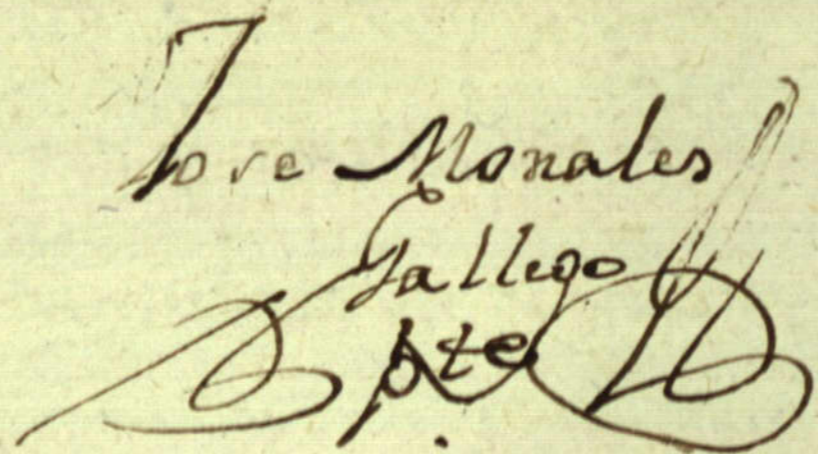 Jose Morales
Gallego